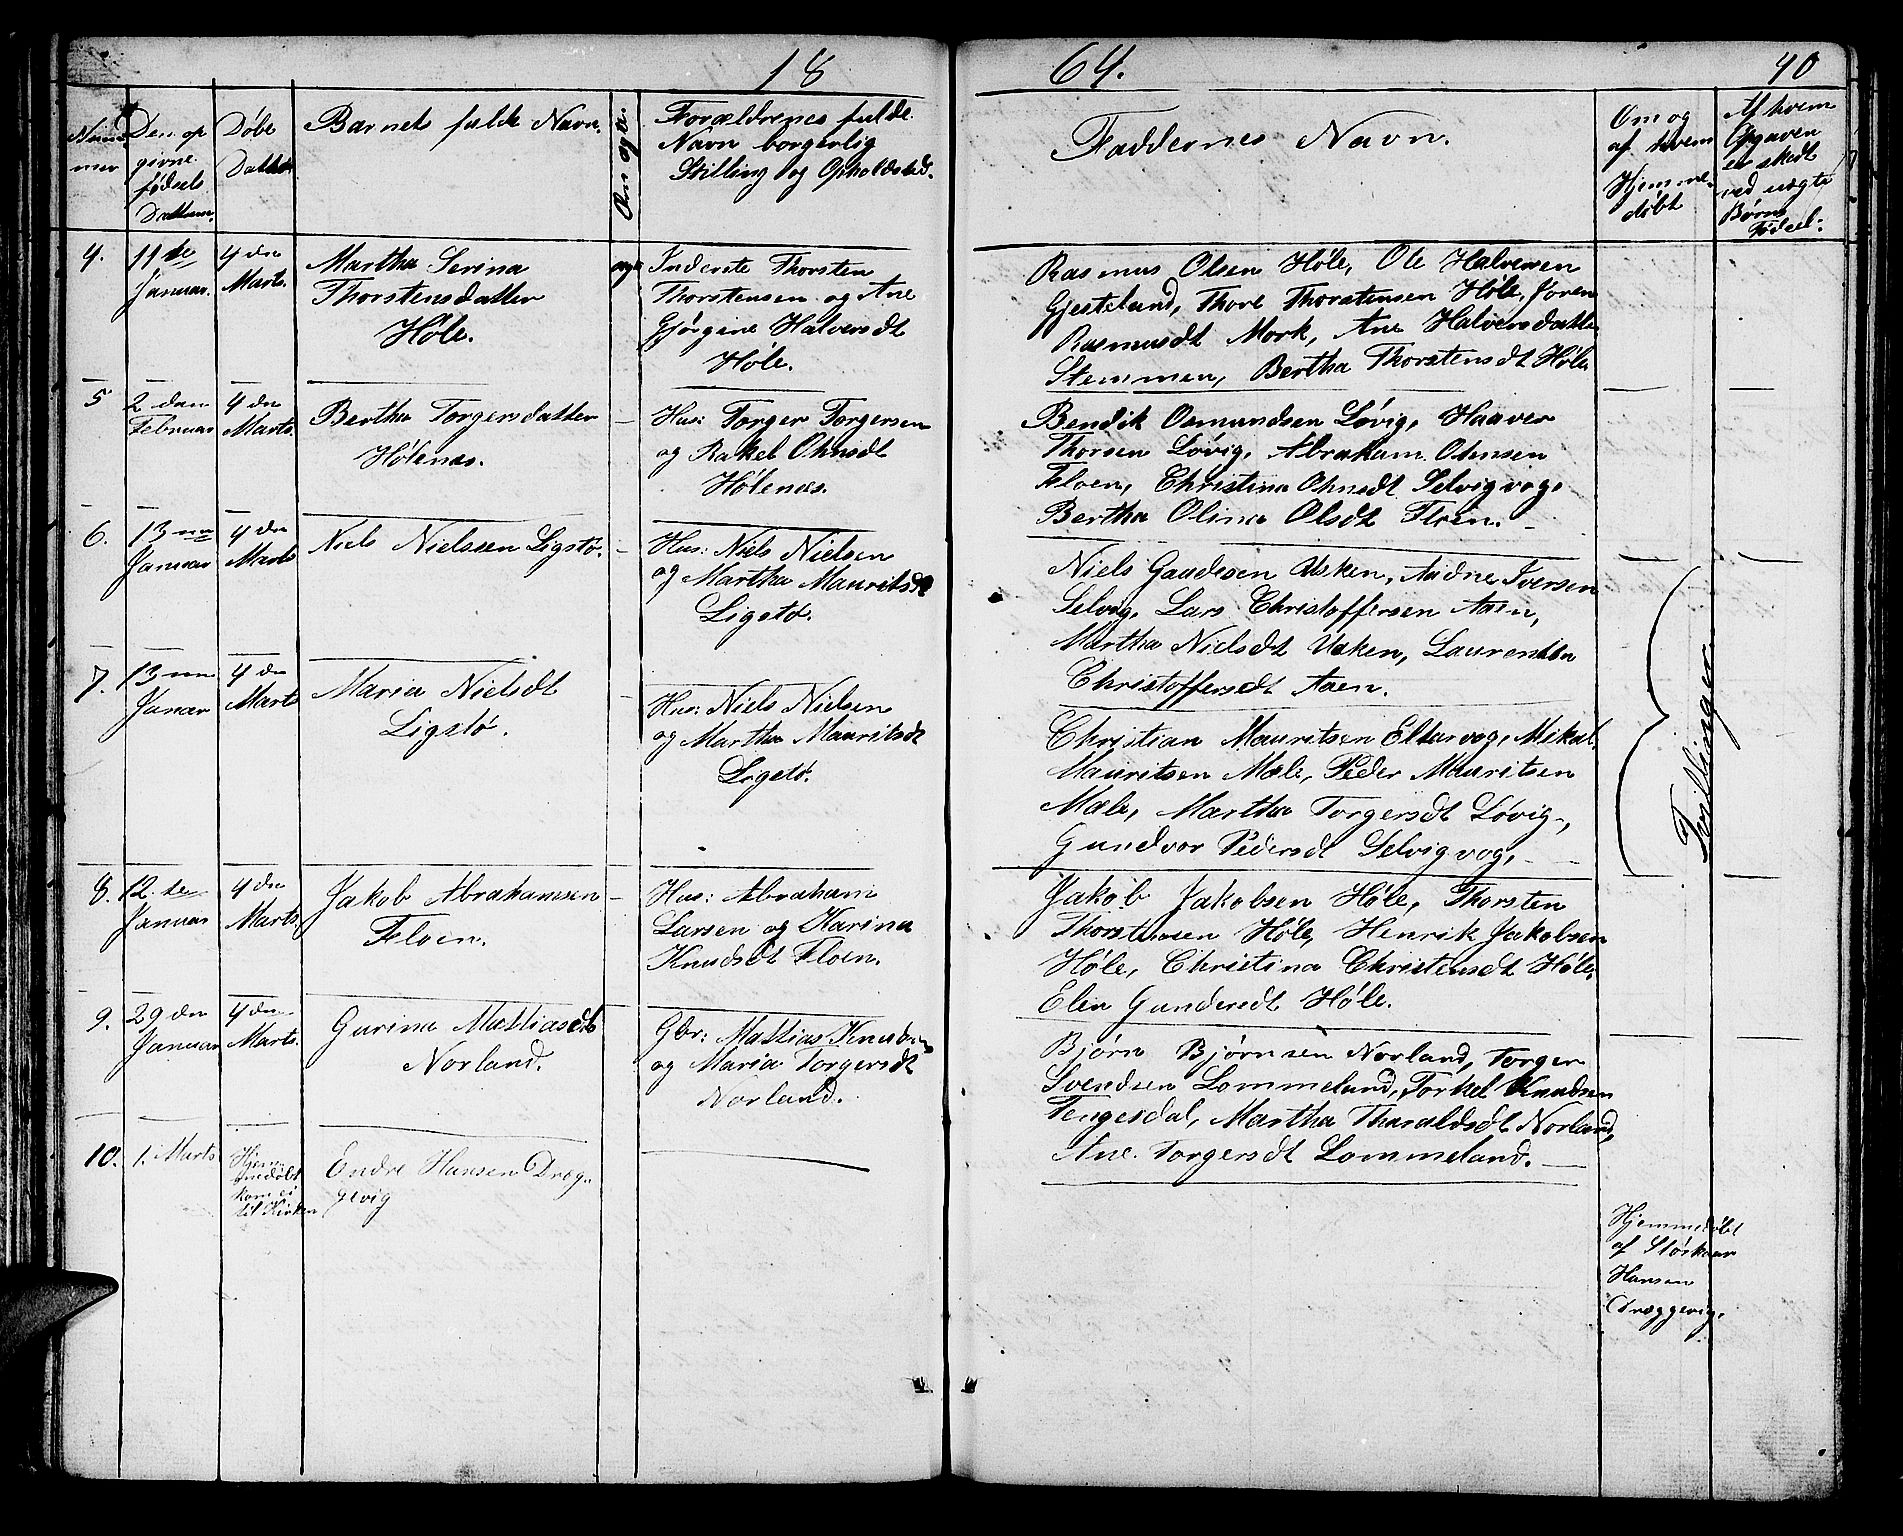 18 64. 40
Nummer
Den opgivne fødsels Dattum.
Døbe Datto
Barnets fulde Navn.
Æn og a.
Forældrenes fulde
Navn borgerlig
Stilling og Opholdsted.
Faddernes Navn.
Om og
af hvem
Hjemme-
døbt
Af hvem
Opgaven
er skedt
ved uægte
Børns
Fødsel.
4. 11te Januar. 4de Marts.
Martha Serina
Thorstensdatter
Høle.
ægte
Inderste Thorsten
Thorstensen og Ane
Gjørgine Halversdt
Høle.
Rasmus Olsen Høle, Ole Halversen
Gjesteland, Thore Thorstensen Høle, Joren
Rasmusdt Mork, Ane Halversdatter
Stemmen, Bertha Thorstensdt Høle.
5 2den Februar 4de Marts.
Bertha Torgersdatter
Hølenæs.
—
Hus: Torger Torgersen
og Rakel Ohnsdt
Hølenæs.
Bendik Osmundsen Løvig, Haaver
Thorsen Løvig, Abraham
Floen, Christina Ohnsdt Selvigvog,
Bertha Olina Olsdt Floen. —
6. 13de Januar 4de Marts
Niels Nielssen Ligstø.
—
Hus: Niels Nielsen
og Martha Mauritsdt
Ligstø.
Niels Gaudesen Usken, Audne Iversen
Selvig, Lars Christoffersen Aaen,
Martha Nielsdt Usken, Laurentse
Christoffersdt Aaen.
7. 13de Januar 4de Marts
Maria Nielsdt
Ligstø.
—
Hus: Niels Nielsen
og Martha Mauritsdt
Ligstø.
Christian Mauritsen Eltarvog, Mikal
Mauritsen Mæle, Peder Mauritsen
Mæle, Martha Torgersdt Løvig,
Gundvor Pedersdt Selvigvog. —
Tvillinger.
8. 12te Januar 4de Marts.
Jakob Abrahamsen
Floen.
—
Hus: Abraham
Larsen og Karina
Knudsdt Floen.
Jakob Jakobsen Høle, Thorsten
Thorstensen Høle, Henrik Jakobsen
Høle, Christina Christensdt Høle
Elen Gundersdt Høle.
9. 29de Januar 4de Marts.
Gurina Mattiasdt
Norland.
Gbr: Mattias Knudsen
og Maria Torgersdt
Norland.
Bjørn Bjørnsen Norland, Torger
Svendsen Lommeland, Torkel Knudsen
Tengesdal, Martha Tharaldsdt Norland,
Ane Torgersdt Lommeland. —
10. 1. Marts
Hjem-
medøbt
kom ei
til Kirken
Endre Hansen Dræg-
gevig
Hjemmedøbt
af Størkaar
Hansen
Dræggevig.